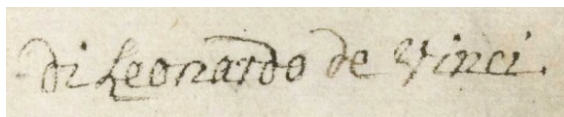 di Leonardo de Vinci.